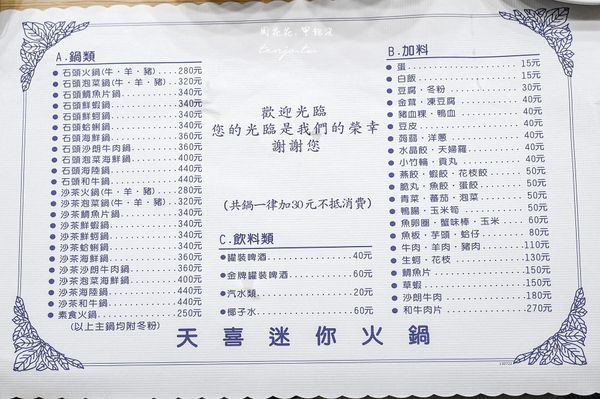 周花花，甲飽沒
tenjo.tw
A.鍋類
石頭火鍋(牛、羊、豬)...280元
石頭泡菜鍋(牛、羊、豬)...320元
石頭鯛魚片鍋...340元
石頭鮮蝦鍋...340元
石頭鮮蚵鍋...340元
石頭蛤蜊鍋...340元
石頭海鮮鍋...350元
石頭沙朗牛肉鍋...360元
石頭泡菜海鮮鍋...400元
石頭海陸鍋...440元
石頭和牛鍋...440元
沙茶火鍋(牛、羊、豬)...280元
沙茶泡菜鍋(牛、羊、豬)...320元
沙茶鯛魚片鍋...340元
沙茶鮮蝦鍋...340元
沙茶鮮蚵鍋...340元
沙茶蛤蜊鍋...340元
沙茶海鮮鍋...350元
沙茶沙朗牛肉鍋...360元
沙茶泡菜海鮮鍋...400元
沙茶海陸鍋...440元
沙茶和牛鍋...440元
素食火鍋...250元
(以上主鍋均附冬粉)
歡迎光臨
您的光臨是我們的榮幸
謝謝您
(共鍋一律加30元不抵消費)
C.飲料類
罐裝啤酒...40元
金牌罐裝啤酒...60元
汽水類...20元
椰子水...60元
B.加料
蛋...15元
白飯...15元
豆腐、冬粉...30元
金茸、凍豆腐...40元
豬血粿、鴨血...40元
豆皮...40元
蒟蒻、洋蔥...40元
水晶餃、天婦羅...40元
小竹輪、貢丸...40元
燕餃、蝦餃、花枝餃...50元
脆丸、魚餃、蛋餃...50元
青菜、蕃茄、泡菜...50元
鴨腸、玉米筍...50元
魚卵圈、蟹味棒、玉米...60元
魚板、芋頭、蛤仔...80元
牛肉、羊肉、豬肉...110元
生蚵、花枝...130元
鯛魚片...150元
草蝦...150元
沙朗牛肉...180元
和牛肉片...270元
天喜迷你火鍋